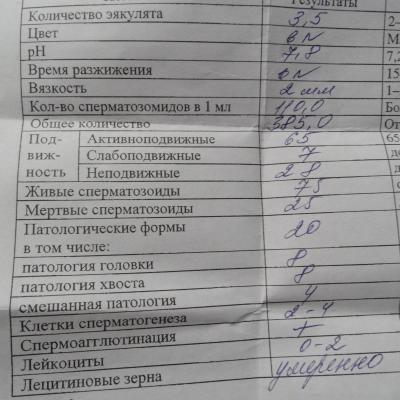 Результаты
Количество эякулята 3,5 2-
Цвет в N М
pH 7,8 7,2
Время разжижения в N 15
Вязкость 2 мм 1–
Кол-во сперматозомидов в 1 мл 110,0 Бо
Общее количество 385,0 От
Под-виж-ность Активноподвижные 65 65
Слабоподвижные 7
Неподвижные 28
Живые сперматозоиды 75
Мертвые сперматозоиды 25
Патологические формы 20
в том числе:
патология головки 8
патология хвоста 8
смешанная патология 4
Клетки сперматогенеза 2-4
Спермоагглютинация
Лейкоциты 0-2
Лецитиновые зерна умеренно